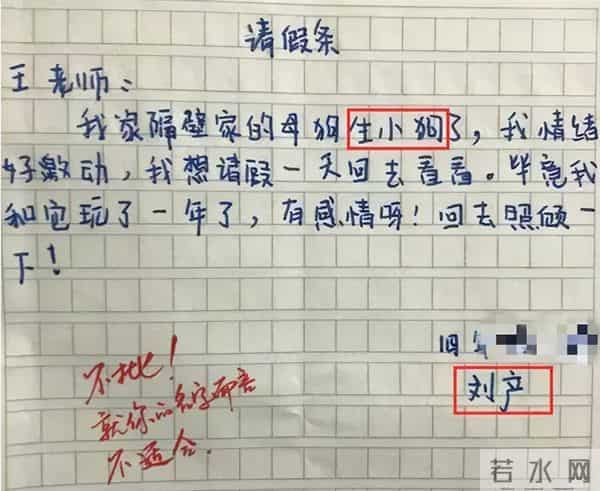 请假条
王老师：
我家隔壁家的母狗生小狗了，我情绪
好激动，我想请假一天回去看看。毕竟我
和它玩了一年了，有感情呀！回去照顾一
下！
刘产
不批！
就你的名字而言
不适合.
若水网